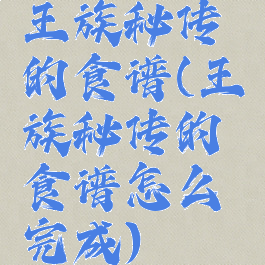 王族秘传
的食谱(王
族秘传的
食谱怎么
完成)